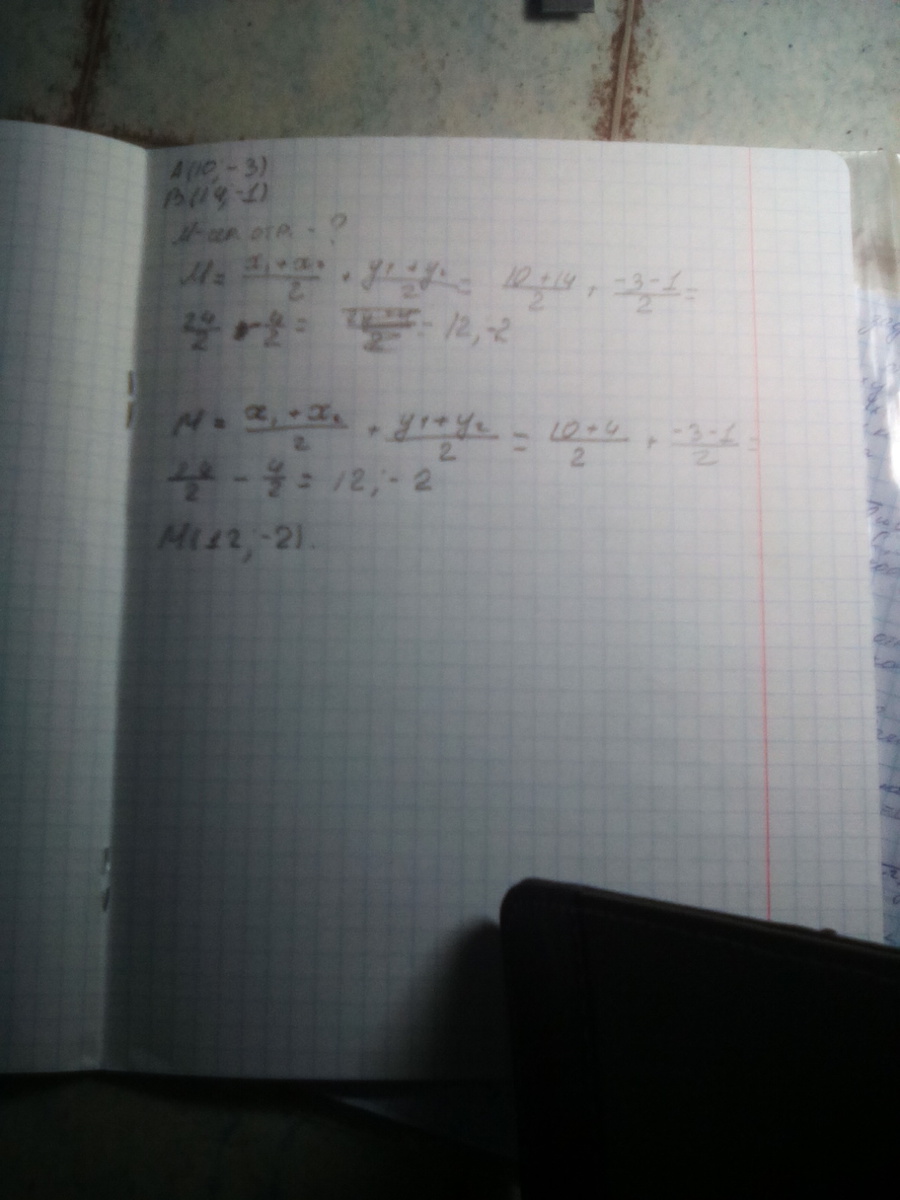 A(10,-3)
B(14,-1)
M-сер. отр. - ?
M = x₁+x₂/2 + y₁+y₂/2 = 10+14/2 + -3-1/2 =
24/2 - 4/2 = 12,-2
M = x₁+x₂/2 + y₁+y₂/2 = 10+4/2 + -3-1/2 =
24/2 - 4/2 = 12,-2
M(12,-2).